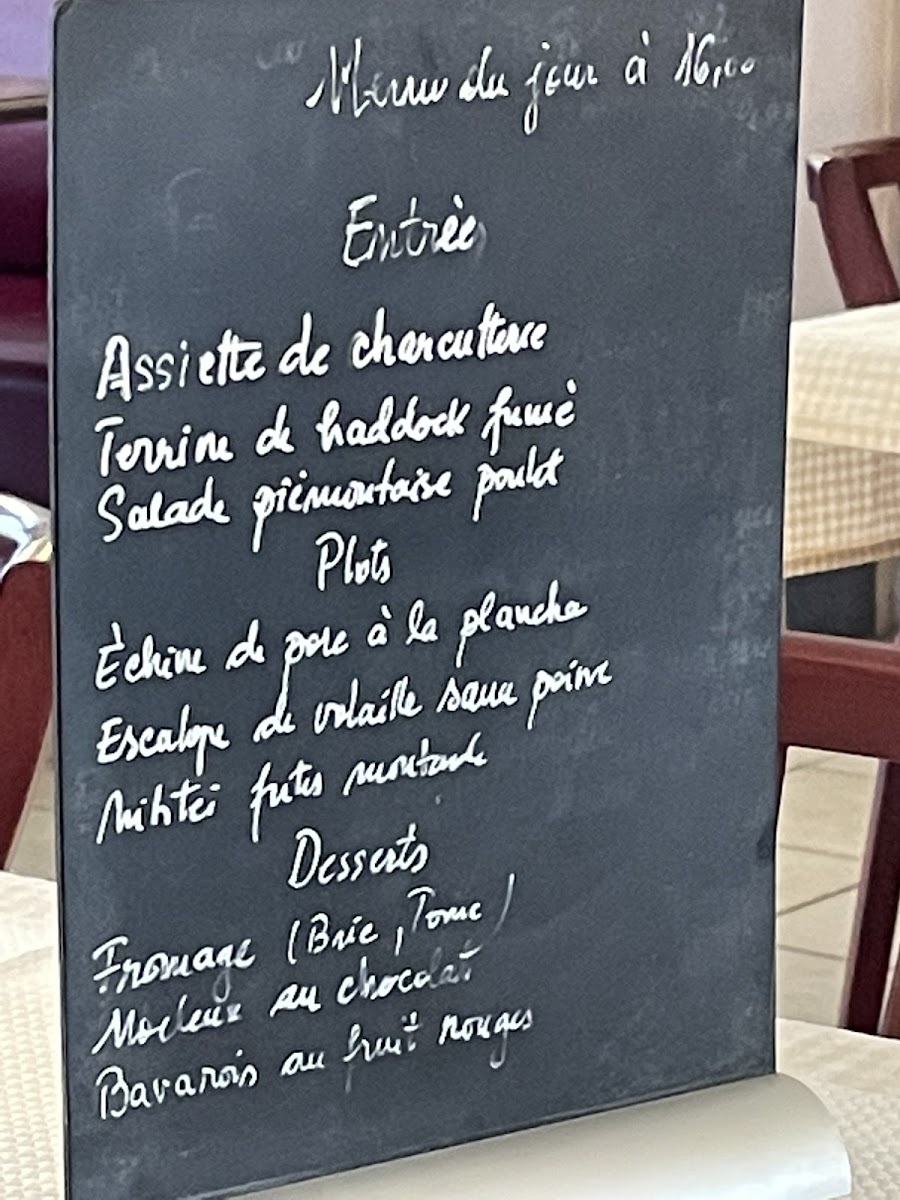 Menu du jour à 16,00
Entrée
Assiette de charcuterie
Terrine de haddock fumé
Salade piémontaise poulet
Plats
Échine de porc à la planche
Escalope de volaille sauce poivre
frites moutarde
Desserts
Fromage (Brie, Tome)
Moeleux au chocolat
Bavarois au fruit rouges